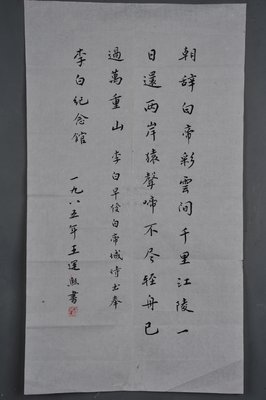 朝辞白帝彩雲间千里江陵一
日還两岸猿聲啼不尽轻舟已
過萬重山 李白早发白帝城诗书奉
李白纪念馆 一九八五年王運熙書